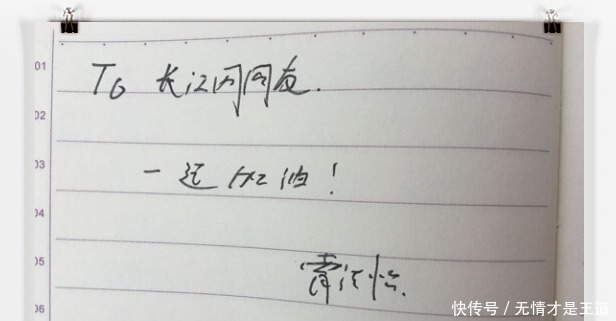 To 长江网网友.
一起加油！
01
02
03
04
05
06
快传号 / 无情才是王道